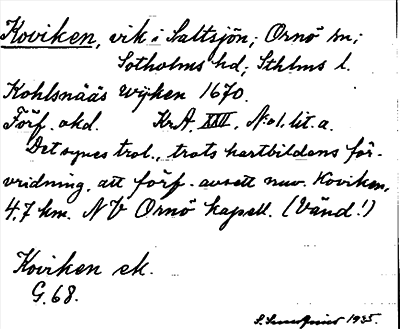 Koviken, vik i Saltsjön; Ornö sn;
Sotholms hd; Sthlms l.
Kohlsnääs Wijken 1670.
Förf. okd. KrA. XXII, No 1. lit. a.
Det synes trol., trots kartbildens för-
vridning, att förf. avsett nuv. Koviken,
4,7 km. NV Ornö kapell. (Vänd!)
Koviken ek.
G. 68.
1935.